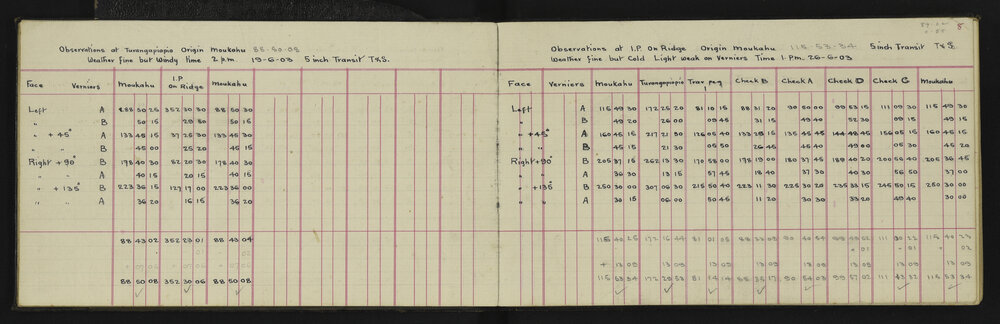 Observations at Turangapiopio Origin Moukahu 88-50-08
Weather fine but Windy Time 2 p.m 19-6-03 5 inch Transit T&S.
Face Verniers Moukahu I.P. on Ridge Moukahu
Left A 88 50 25 352 30 30 88 50 30
" B 50 15 29 50 50 15
" +45° A 133 45 15 37 25 30 133 45 30
" " B 45 00 25 20 45 15
Right +90° B 178 40 30 82 20 30 178 40 30
" " A 40 15 20 15 40 15
" +135° B 223 36 15 127 17 00 223 36 00
" " A 36 20 16 15 36 20
88 43 02 352 23 01 88 43 04
02
88 50 08 352 30 06 88 50 08
8
Observations at I.P. on Ridge Origin Moukahu 115-53-34 5 inch Transit T&S.
Weather fine but Cold Light weak on Verniers Time 1 P.m. 26-6-03
Face Verniers Moukahu Turangapiopio Trav peg Check B Check A Check D Check C Moukahu
Left A 115 49 30 172 25 20 81 10 15 88 31 20 90 50 00 99 53 15 111 09 30 115 49 30
" B 49 20 26 00 09 45 31 15 49 40 52 30 09 15 49 15
" +45° A 160 45 15 217 21 30 126 05 40 133 28 15 135 45 45 144 48 45 156 05 15 160 45 15
" " B 45 15 21 30 05 50 26 45 45 40 49 00 05 30 45 20
Right +90° B 205 37 15 262 13 30 170 58 00 178 19 00 180 37 45 189 40 20 200 56 40 205 36 45
" " A 36 30 13 15 57 45 18 40 37 30 40 30 56 50 37 00
" +135° B 250 30 00 307 06 30 215 50 40 223 11 30 225 30 20 235 33 15 245 50 15 250 30 00
" " A 30 15 06 00 50 45 11 20 30 30 33 20 49 40 30 00
115 40 25 172 16 44 81 01 05 88 22 08 90 40 54 99 43 52 111 30 22 115 40 23
" 01 " 01 " 02
+ 13 09 13 09 13 09 13 09 13 09 13 09 13 09 13 09
115 53 34 172 29 53 81 14 14 88 35 17 90 54 03 99 57 02 111 43 32 115 53 34